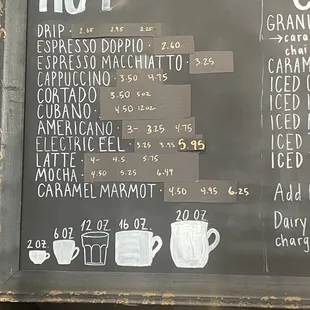 DRIP · 2.65 2.95 3.25
ESPRESSO DOPPIO · 2.60
ESPRESSO MACCHIATTO · 3.25
CAPPUCCINO · 3.50 4.75
CORTADO 3.50 5oz
CUBANO · 4.50 12oz
AMERICANO · 3- 3.25 4.75
ELECTRIC EEL · 5.25 5.95
LATTE · 4- 4.5 5.75
MOCHA · 4.50 5.25 6.49
CARAMEL MARMOT · 4.50 4.95 6.25
2 OZ. 6 OZ 12 OZ. 16 OZ. 20 OZ
GRAN
→ cara
chai
CARAM
ICED
ICED
ICED
ICED
ICED
Add
Dairy
charg